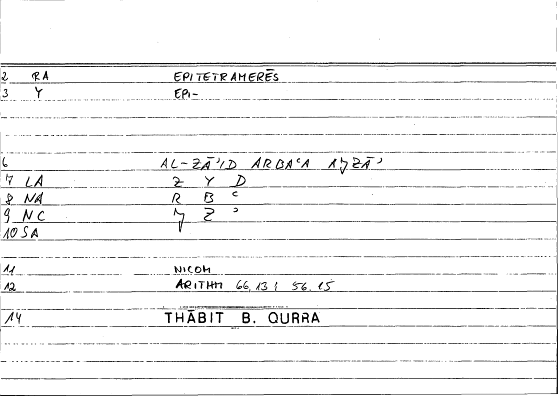 2 RA EPITETRAMERĒS
3 Y EPI-
6 AL-ZĀʾID ARBAʿA AǧZĀʾ
7 LA Z Y D
8 NA R B ʿ
9 NC ǧ Z ʾ
10 SA
11 NICOM
12 ARITHM 66,13; 56.15
14 THĀBIT B. QURRA